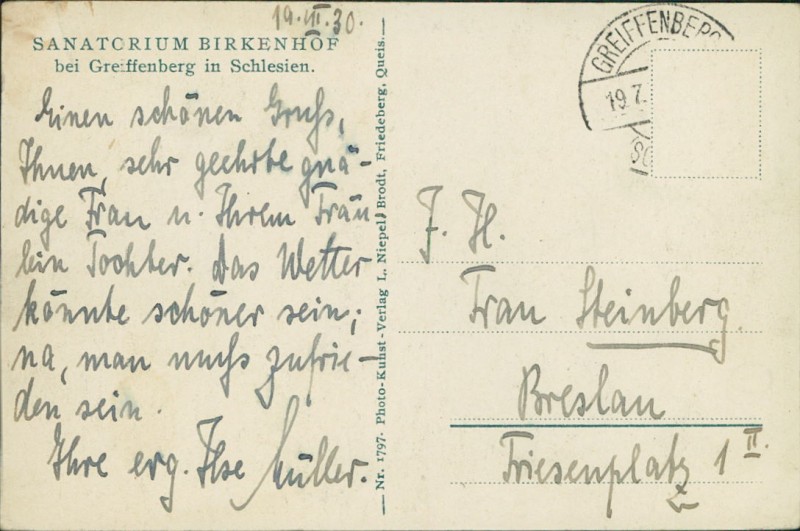 19. III. 30.
SANATORIUM BIRKENHOF
bei Greiffenberg in Schlesien.
Einen schönen Gruss,
Ihnen, sehr geehrte gnä-
dige Frau u. Ihrem Fräu
lein Tochter. Das Wetter
könnte schöner sein;
na, man muss zufrie-
den sein.
Ihre erg. Ilse Müller.
Nr. 1797. Photo-Kunst-Verlag L. Niepel, Brodt, Friedeberg, Queis.
GREIFFENBERG
19 7.
J. H.
Frau Steinberg
Breslau
Friesenplatz 1 II.